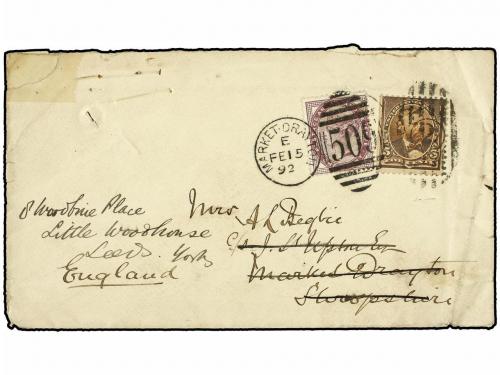 MARKET-DRAYTON
E
FE 15
92
509
8 Woodbine Place
Little Woodhouse
Leeds. Yorks
England
Mrs A L Begbie
c/o J. St Upton Esq
Market Drayton
Shropshire